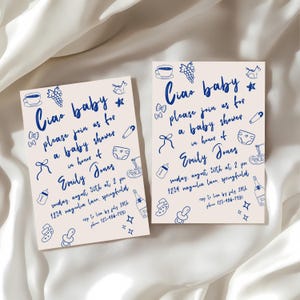 Ciao baby
please join us for
a baby shower
in honor of
Emily Jones
sunday, august 20th at 2 pm
1234 magnolia lane, springfield
rsvp to
by july 29th
Ciao baby
please join us for
a baby shower
in honor of
Emily Jones
sunday, august 20th at 2 pm
1234 magnolia lane, springfield
rsvp to
by july 29th